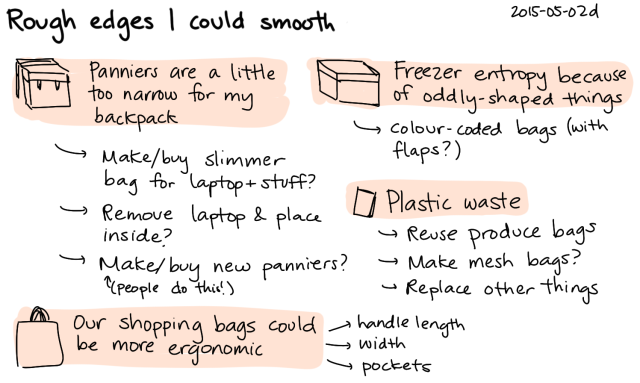 Rough edges I could smooth
2015-05-02d
Panniers are a little
too narrow for my
backpack
Make/buy slimmer
bag for laptop + stuff?
Remove laptop & place
inside?
Make/buy new panniers?
(people do this!)
Freezer entropy because
of oddly-shaped things
colour-coded bags (with
flaps?)
Plastic waste
Reuse produce bags
Make mesh bags?
Replace other things
Our shopping bags could
be more ergonomic
handle length
width
pockets